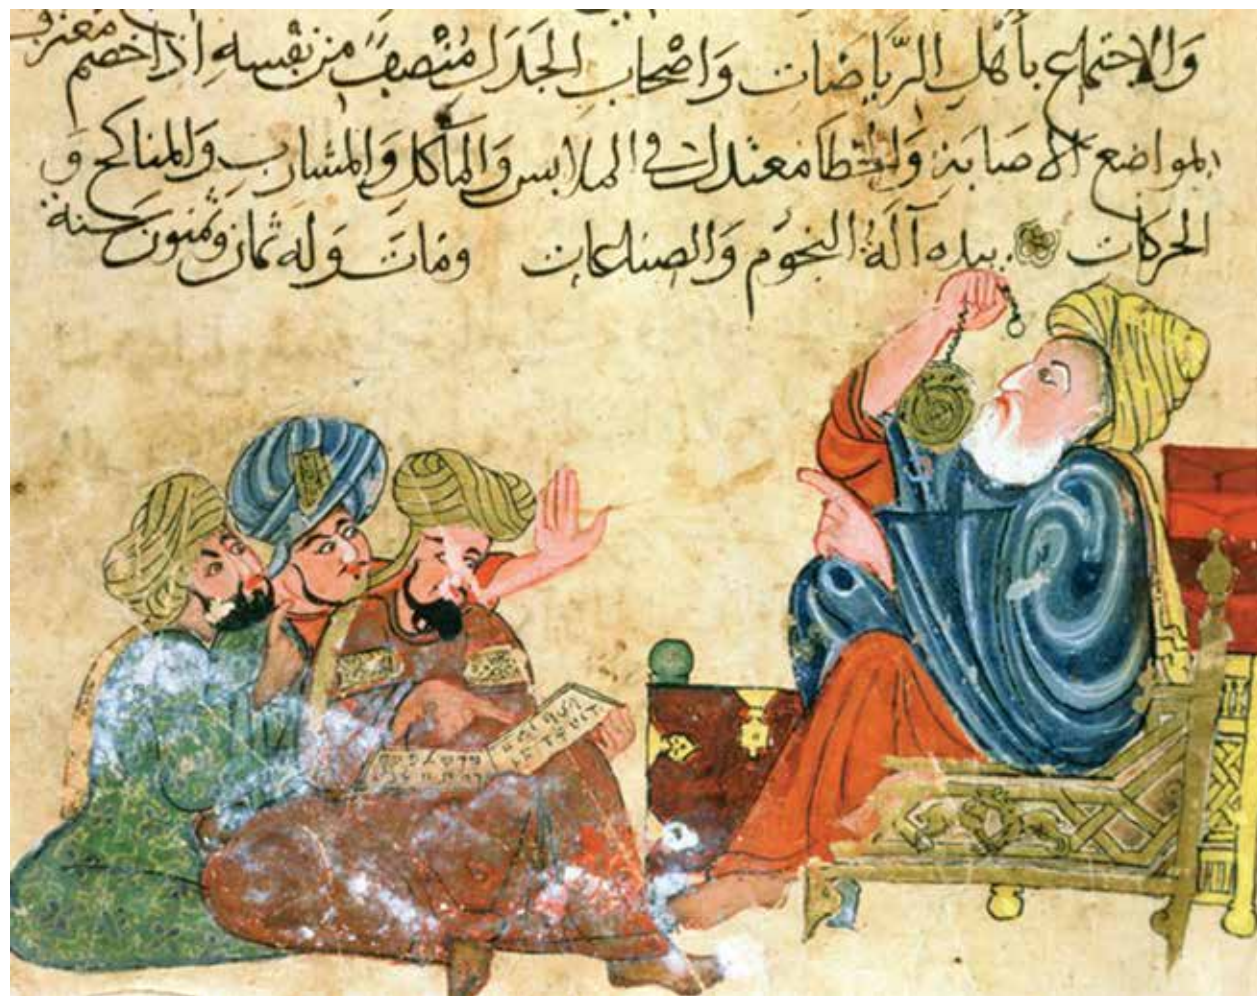 وَالاجتماع بأهْل الرّيَاضَات وَاصْحَاب الجَدَل مُنْصِفٌ من نفْسه اذا خصم معترف
لمواضع الاصَابَة وَالخطا معتدل في الملابس وَالمآكل وَالمشارب وَالمناكح وَ
الحركات بيده آلَةُ النجوم وَالصناعات ومَاتَ وَله ثمان وثمنون سنة